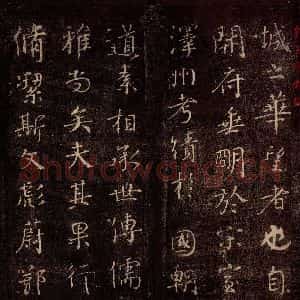 城之華望者也自
開府垂䎽於宗室
澤州考績於國朝
道素相承世傳儒
雅尚矣夫其果行
脩潔斯文彪蔚鄧
Shufawang.CN